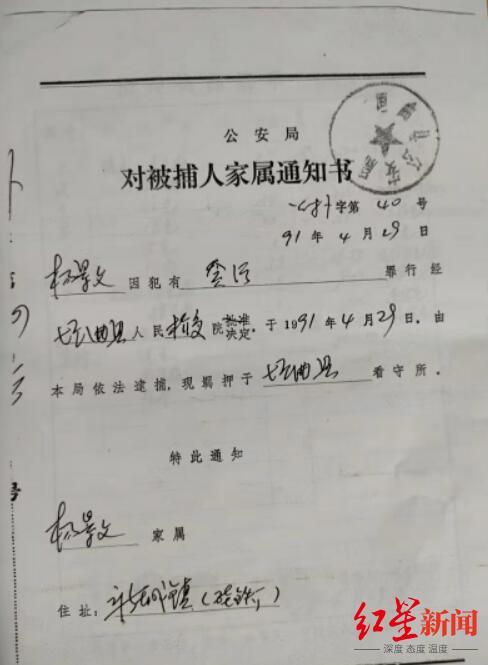 公安局
对被捕人家属通知书
字第 40 号
91 年 4 月 29 日
杨景文 因犯有 贪污 罪行经
垣曲县 人民 检查 院 批准 决定,于 1991 年 4 月 29 日,由
本局依法逮捕,现羁押于 垣曲县 看守所。
特此通知
杨景文 家属
住址:
红星新闻
深度 态度 温度